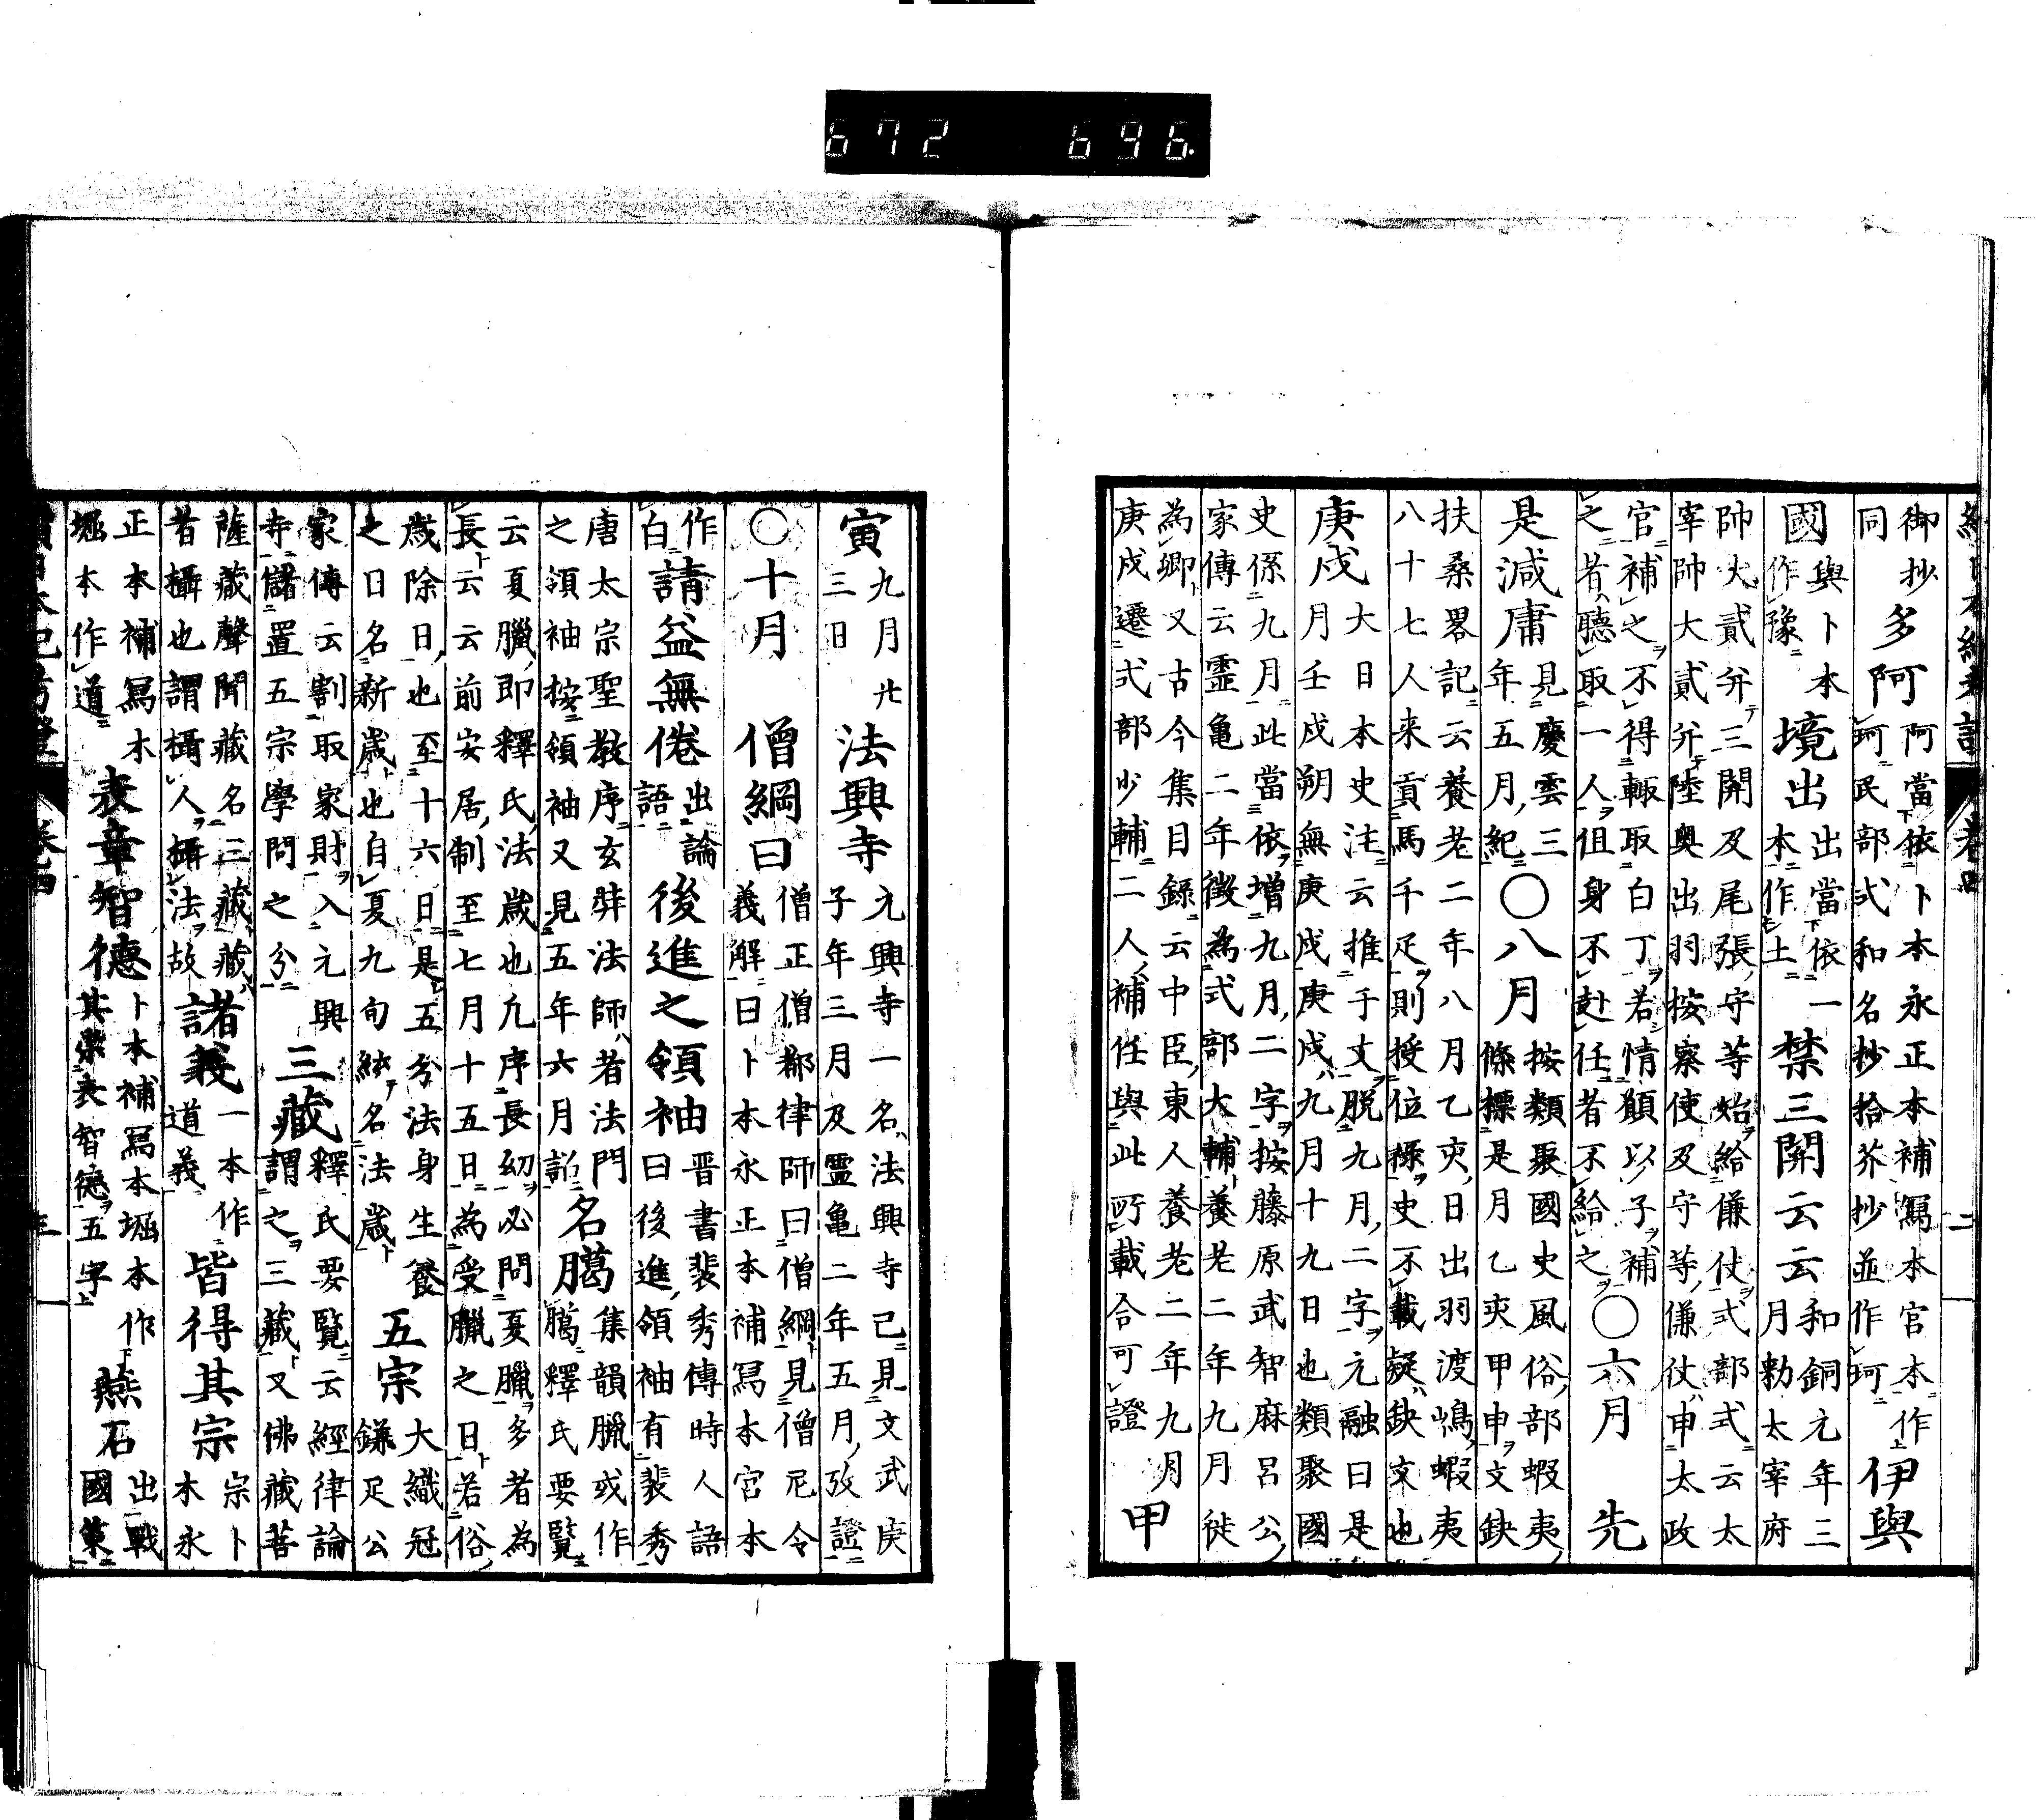 續日本紀考證 卷四 二
御抄同 多阿 阿當依卜本永正本補寫本官本作珂民部式和名抄拾芥抄並作珂 伊與
國 與卜本作豫 境出 出當依一本作土 禁三関云云 和銅元年三月勅太宰府
帥大貳幷三関及尾張守等始給傔仗式部式云太
宰帥大貳幷陸奥出羽按察使及守等傔仗申太政
官補之不得輙取白丁若情願以子補
之者聽取一人但身不赴任者不給之 ○六月 先
是減庸 見慶雲三年五月紀 ○八月 按類聚國史風俗部蝦夷條標是月乙亥甲申文缺
扶桑畧記云養老二年八月乙亥日出羽渡嶋蝦夷
八十七人来貢馬千疋則授位祿史不載疑缺文也
庚戌 大日本史注云推于支脱九月二字元融曰是
月壬戌朔無庚戌庚戌九月十九日也類聚國
史係九月此當依增九月二字按藤原武智麻呂公
家傳云靈亀二年徵為式部大輔養老二年九月徙
為卿又古今集目録云中臣東人養老二年九月
庚戌遷式部少輔二人補任與此所載合可證 甲
寅 九月廿三日 法興寺 元興寺一名法興寺已見文武庚子年三月及靈亀二年五月攷證
○十月 僧綱曰 僧正僧都律師曰僧綱見僧尼令義解曰卜本永正本補寫本宮本
作白 請益無倦 出論語 後進之領袖 晋書裴秀傳時人語曰後進領袖有裴秀
唐太宗聖教序玄弉法師者法門
之領袖按領袖又見五年六月詔 名﨟 集韻臘或作﨟釋氏要覽
云夏臘即釋氏法歳也凡序長幼必問夏臘多者為
長云云前安居制至七月十五日為受臘之日若俗
歳除日也至十六日是五分法身生養
之日名新歳也自夏九旬統名法歳 五宗 大織冠鎌足公
家傳云割取家財入元興
寺儲置五宗學問之分 三藏 釋氏要覽云經律論謂之三藏又佛藏菩
薩藏聲聞藏名三藏藏
者攝也謂攝人攝法故 諸義 一本作道義 皆得其宗 宗卜本永
正本補寫本
堀本作道 表章智德 卜本補寫本堀本作其崇表智德五字 燕石 出戰國策
續日本紀考證 卷四 三
672 696.